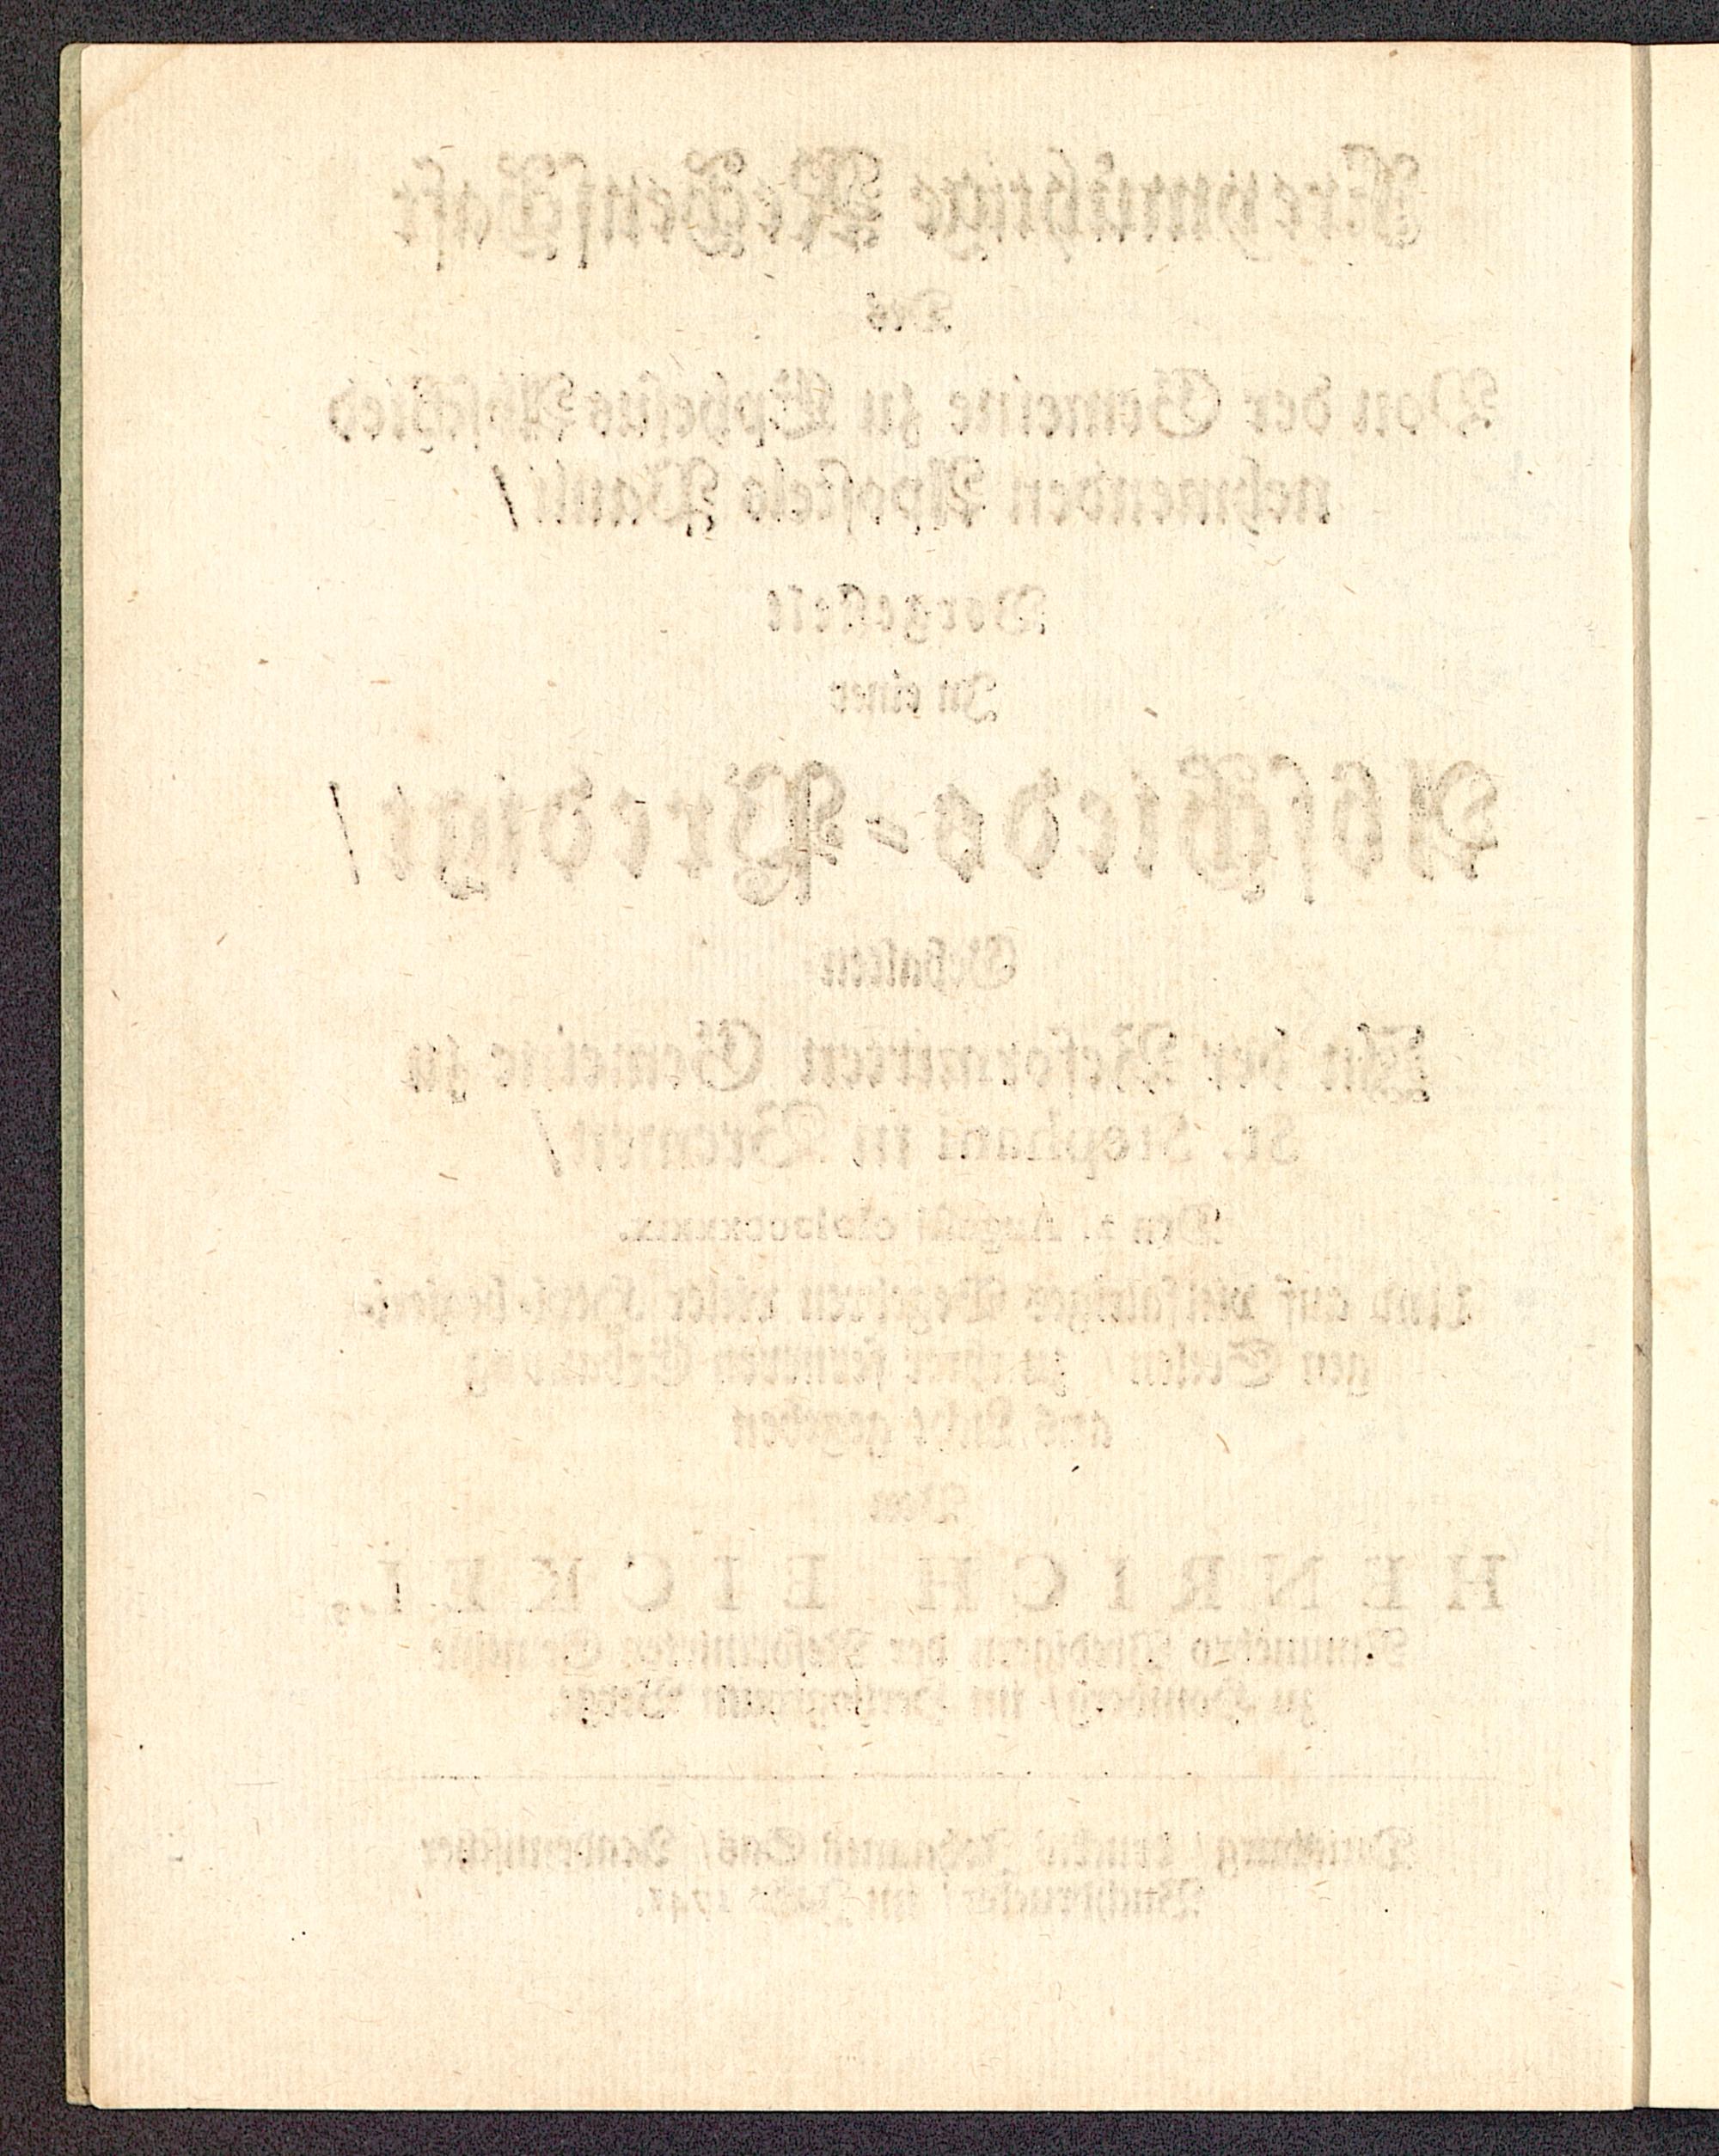 Freymühtige Rechenschaft
Des
Von der Gemeine zu Ephesus Abschied
nehmenden Apostels Pauli /
Vorgestelt
In einer
Abschieds-Predigt /
Gehalten
In der Reformirten Gemeine zu
St. Stephani in Bremen /
Den 2. Augusti
Und auf vielfältiges Begehren vieler
gen Seelen / zu ihrer ferneren Erbauung
ans Licht gegeben
Von
HENRICH EICKEL,
Nunmehro Predigern der Reformirten Gemeine
zu Homberg / im Hertzogthum Berge.
Duisburg / Johannes Sas /
Buchdrucker / im Jahr